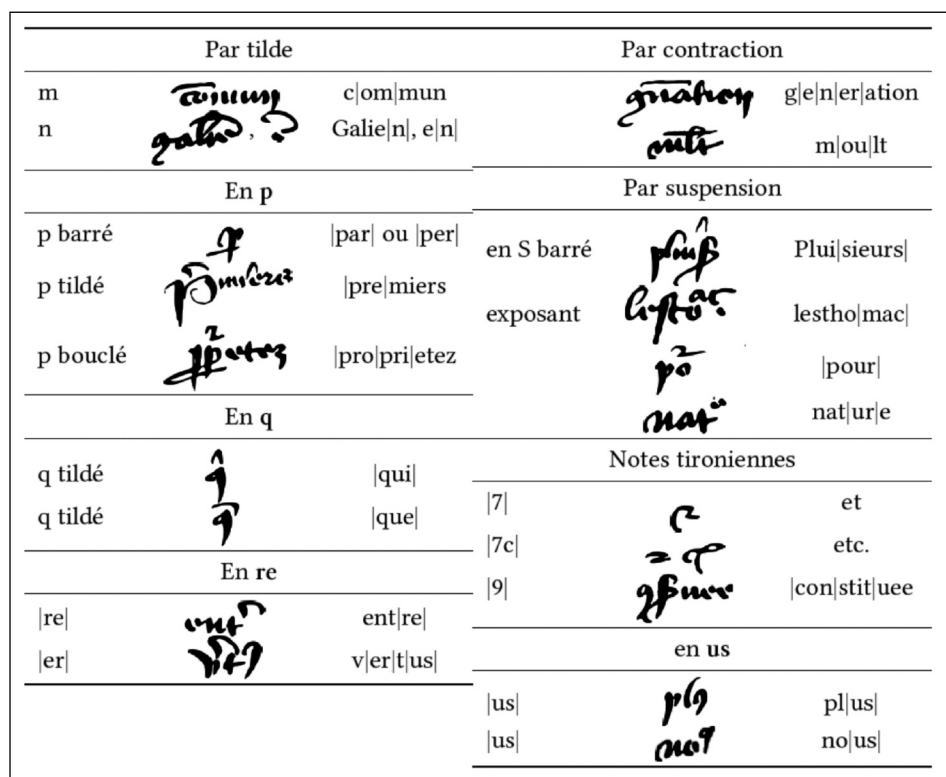 Par tilde
m c|om|mun
n , Galie|n|, e|n|
En p
p barré |par| ou |per|
p tildé |pre|miers
p bouclé |pro|pri|etez
En q
q tildé |qui|
q tildé |que|
En re
|re| ent|re|
|er| v|er|t|us|
Par contraction
g|e|n|er|ation
m|ou|lt
Par suspension
en S barré Plui|sieurs|
exposant lestho|mac|
|pour|
nat|ur|e
Notes tironiennes
|7| et
|7c| etc.
|9| |con|stit|uee
en us
|us| pl|us|
|us| no|us|